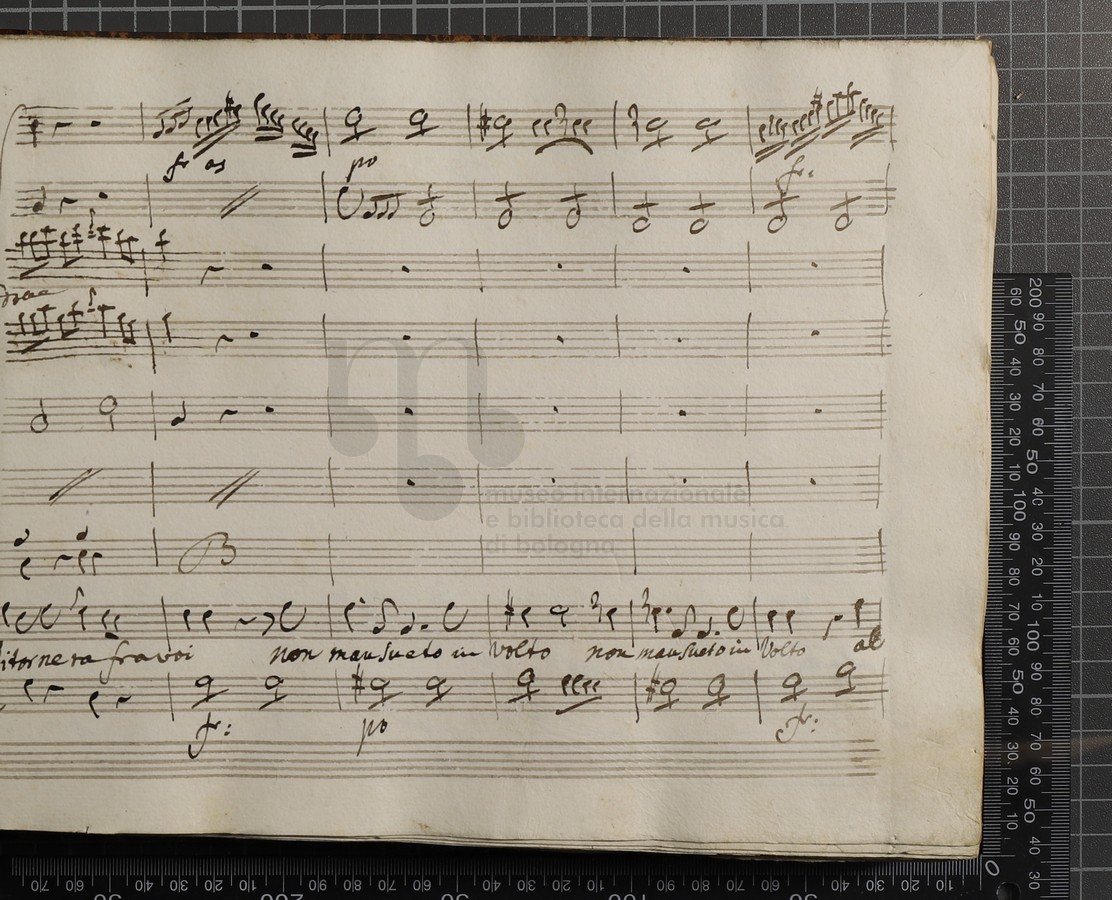 fr as po fr:
museo internazionale
e biblioteca della musica
di bologna
itornera fra voi non mansueto in volto non mansueto in volto al
fr: po fr: